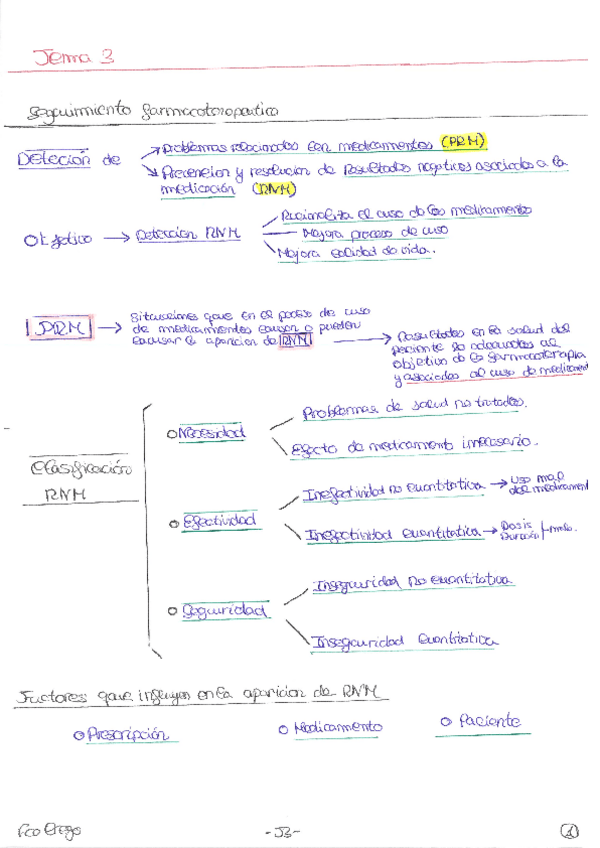 Tema 3
Seguimiento farmacoterapeutico
Detección de
Problemas relacionados con medicamentos (PRM)
Prevencion y resolucion de Resultados negativos asociados a la
medicación (RNM)
Objetivo → Deteccion RNM
Racimaliza el uso de los medicamentos
Mejora proceso de uso
Mejora calidad de vida.
PRM → Situaciones que en el proceso de uso
de medicamentos causan o pueden
causar la aparicion de RNM →
Resultados en la salud del
paciente no adecuados al
objetivo de la farmacoterapia
y asociados al uso de medicament
Clasificación
RNM
o Necesidad
Problemas de salud no tratados.
Efecto de medicamento innecesario.
o Efectividad
Inefectividad no cuantitativa → Uso mal
del medicament
Inefectividad cuantitativa → Dosis
Duración
o Seguridad
Inseguridad no cuantitativa
Inseguridad cuantitativa
Factores que influyen en la aparicion de RNM
o Prescripción
o Medicamento
o Paciente
Fco
-53-
1